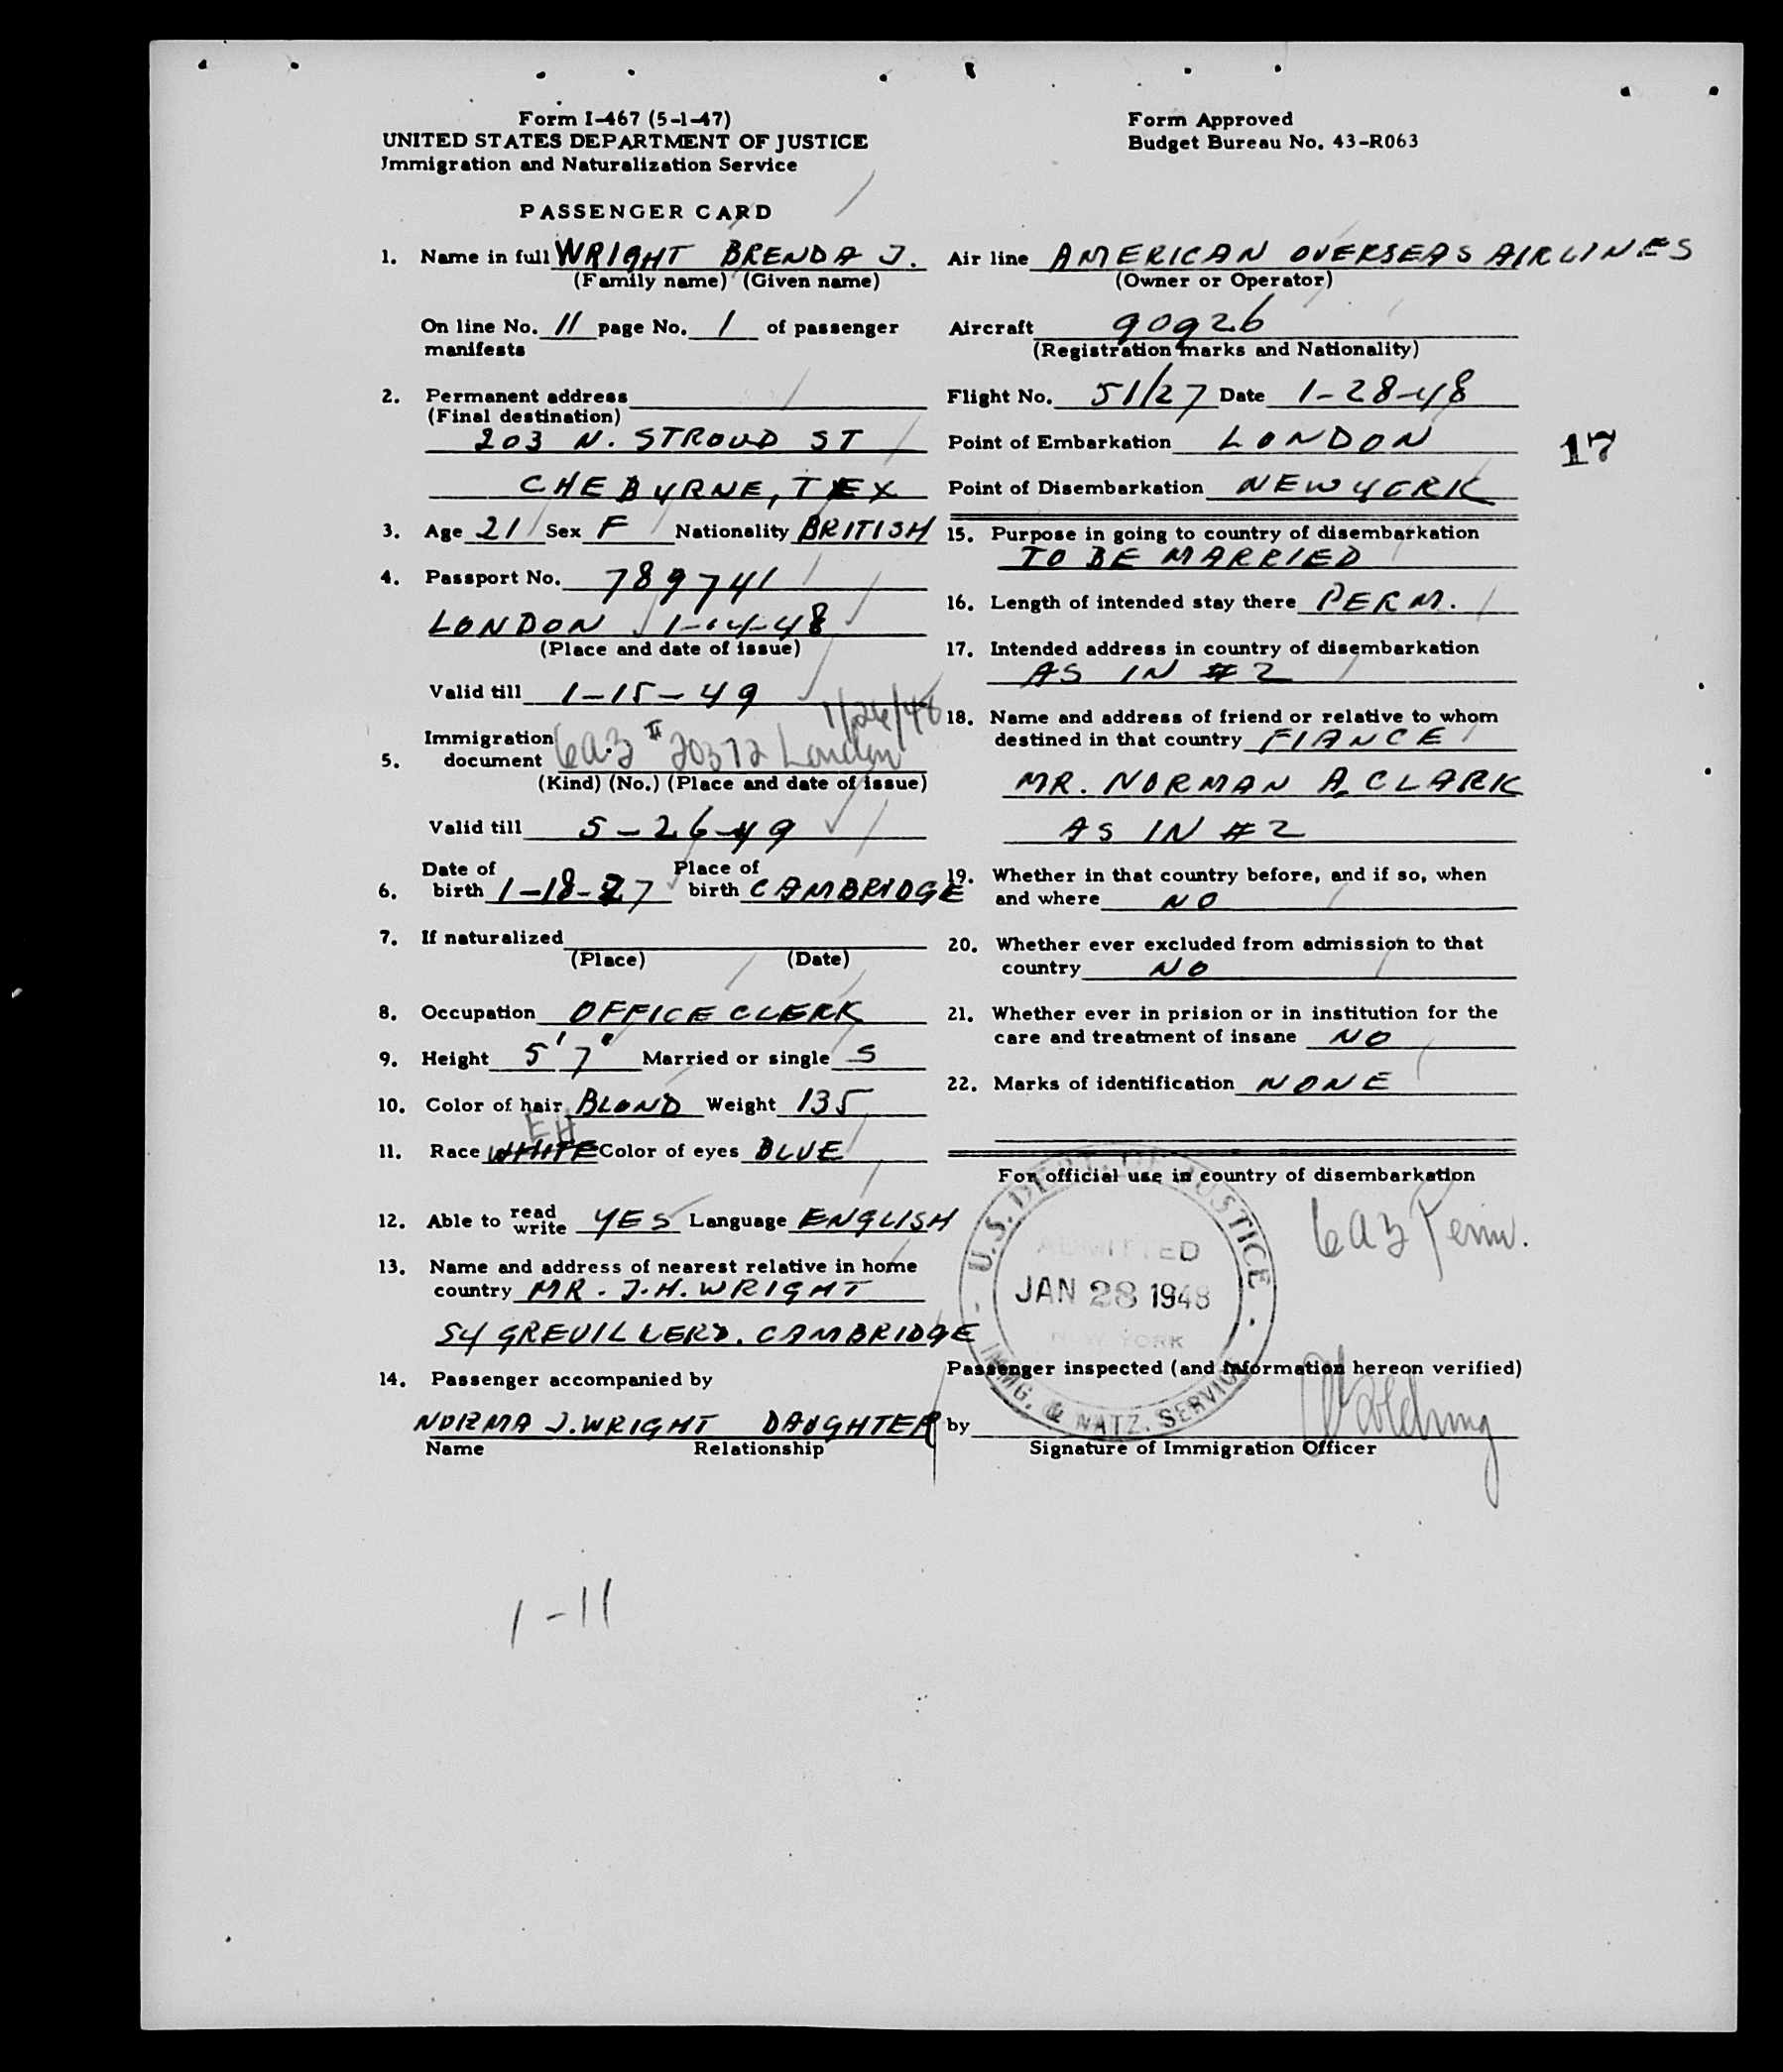 Form I-467 (5-1-47)
UNITED STATES DEPARTMENT OF JUSTICE
Immigration and Naturalization Service
Form Approved
Budget Bureau No. 43-R063
PASSENGER CARD
1. Name in full WRIGHT BRENDA J.
(Family name) (Given name)
On line No. 11 page No. 1 of passenger
manifests
2. Permanent address
(Final destination)
203 N. STROUD ST
CHEBURNE, TEX
3. Age 21 Sex F Nationality BRITISH
4. Passport No. 789741
LONDON 1-14-48
(Place and date of issue)
Valid till 1-15-49
1/26/48
Immigration
5. document 6a3 # 20372 London
(Kind) (No.) (Place and date of issue)
Valid till 5-26-49
Date of Place of
6. birth 1-18-27 birth CAMBRIDGE
7. If naturalized
(Place) (Date)
8. Occupation OFFICE CLERK
9. Height 5' 7" Married or single S
10. Color of hair BLOND Weight 135
EH
11. Race WHITE Color of eyes BLUE
12. Able to read write YES Language ENGLISH
13. Name and address of nearest relative in home
country MR. J.H. WRIGHT
54 GREVILLE RD. CAMBRIDGE
14. Passenger accompanied by
NORMA J. WRIGHT DAUGHTER
Name Relationship
Air line AMERICAN OVERSEAS AIRLINES
(Owner or Operator)
Aircraft 90926
(Registration marks and Nationality)
Flight No. 51/27 Date 1-28-48
Point of Embarkation LONDON
17
Point of Disembarkation NEW YORK
15. Purpose in going to country of disembarkation
TO BE MARRIED
16. Length of intended stay there PERM.
17. Intended address in country of disembarkation
AS IN #2
18. Name and address of friend or relative to whom
destined in that country FIANCE
MR. NORMAN A. CLARK
AS IN #2
19. Whether in that country before, and if so, when
and where NO
20. Whether ever excluded from admission to that
country NO
21. Whether ever in prision or in institution for the
care and treatment of insane NO
22. Marks of identification NONE
For official use in country of disembarkation
6a3 Perm.
U.S. DEPT. OF JUSTICE
ADMITTED
JAN 28 1948
NEW YORK
IMMG. & NATZ. SERVICE
Passenger inspected (and information hereon verified)
by
Signature of Immigration Officer
1-11